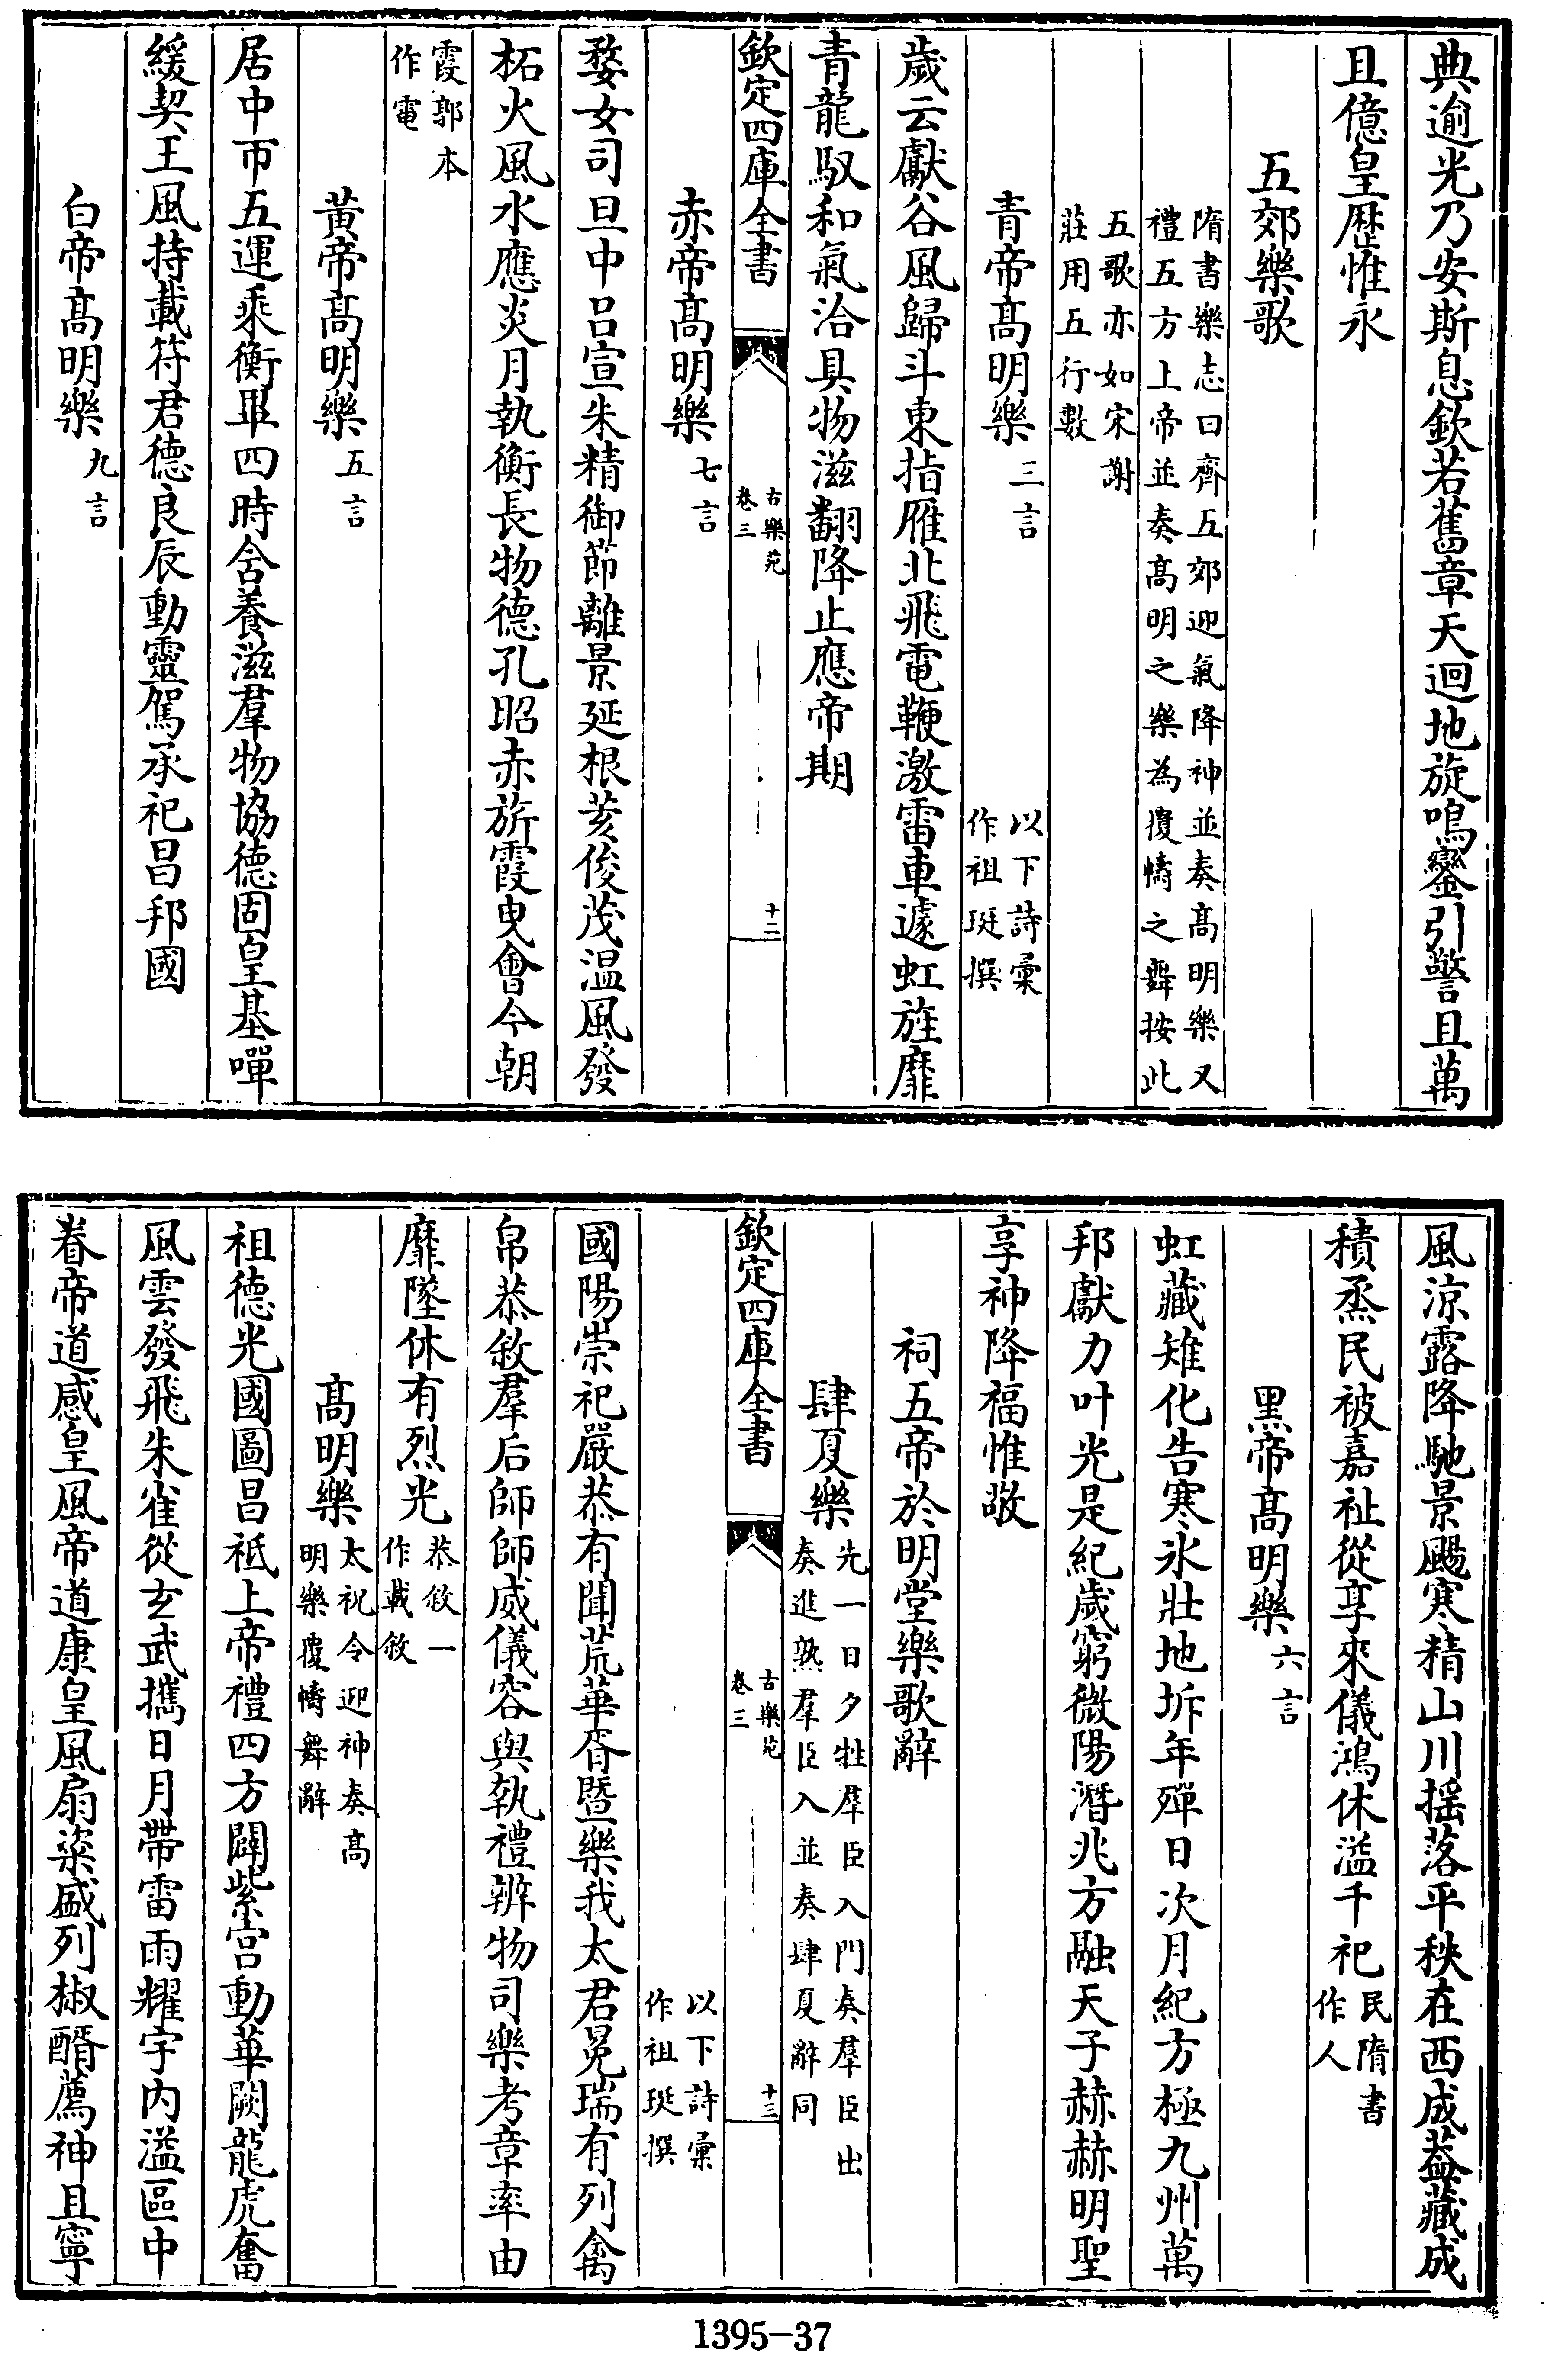 典逾光乃安斯息欽若舊章天迴地旋鳴鑾引警且萬
且億皇歷惟永
五郊樂歌
隋書樂志曰齊五郊迎氣降神並奏髙明樂又
禮五方上帝並奏髙明之樂為覆幬之舞按此
五歌亦如宋謝
莊用五行數
青帝髙明樂三言
以下詩彚
作祖珽撰
歲云獻谷風歸斗東指雁北飛電鞭激雷車遽虹旌靡
青龍馭和氣洽具物滋翻降止應帝期
欽定四庫全書
古樂苑
卷三
十二
赤帝髙明樂七言
婺女司旦中呂宣朱精御節離景延根荄俊茂温風發
柘火風水應炎月執衡長物德孔昭赤旂霞曳會今朝
霞郭本
作電
黃帝髙明樂五言
居中帀五運乘衡畢四時含養滋羣物協德固皇基嘽
緩契王風持載符君德良辰動靈駕承祀昌邦國
白帝髙明樂九言
風涼露降馳景颺寒精山川揺落平秩在西成葢藏成
積烝民被嘉祉從享來儀鴻休溢千祀民隋書
作人
黑帝髙明樂六言
虹藏雉化告寒氷壯地坼年殫日次月紀方極九州萬
邦獻力叶光是紀歲窮微陽潛兆方融天子赫赫明聖
享神降福惟敬
祠五帝於明堂樂歌辭
肆夏樂先一日夕牲羣臣入門奏羣臣出
奏進熟羣臣入並奏肆夏辭同
欽定四庫全書
古樂苑
卷三
十三
以下詩彚
作祖珽撰
國陽崇祀嚴恭有聞荒華胥暨樂我太君冕瑞有列禽
帛恭敘羣后師師威儀容與執禮辨物司樂考章率由
靡墜休有烈光恭敘一
作載敘
髙明樂太祝令迎神奏髙
明樂覆幬舞辭
祖德光國圖昌祗上帝禮四方闢紫宫動華闕龍虎奮
風雲發飛朱雀從玄武攜日月帶雷雨耀宇内溢區中
眷帝道感皇風帝道康皇風扇粢盛列椒醑薦神且寧
1395-37